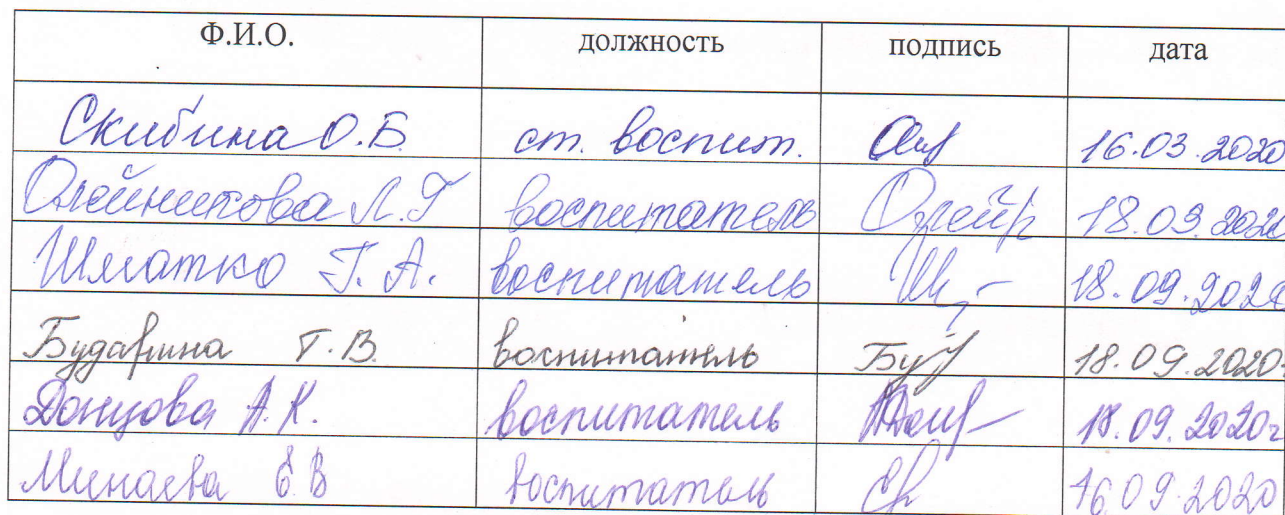 Ф.И.О. должность подпись дата
Скибина О.Б. ст. воспит. 16.03.2020
Олейникова Л.Г воспитатель Олейн 18.09.2020
Шматко Г.А. воспитатель 18.09.2020
Бударина Т.В. воспитатель Буд 18.09.2020г
Донцова А.К. воспитатель 18.09.2020г
Минаева Е.В воспитатель 16.09.2020